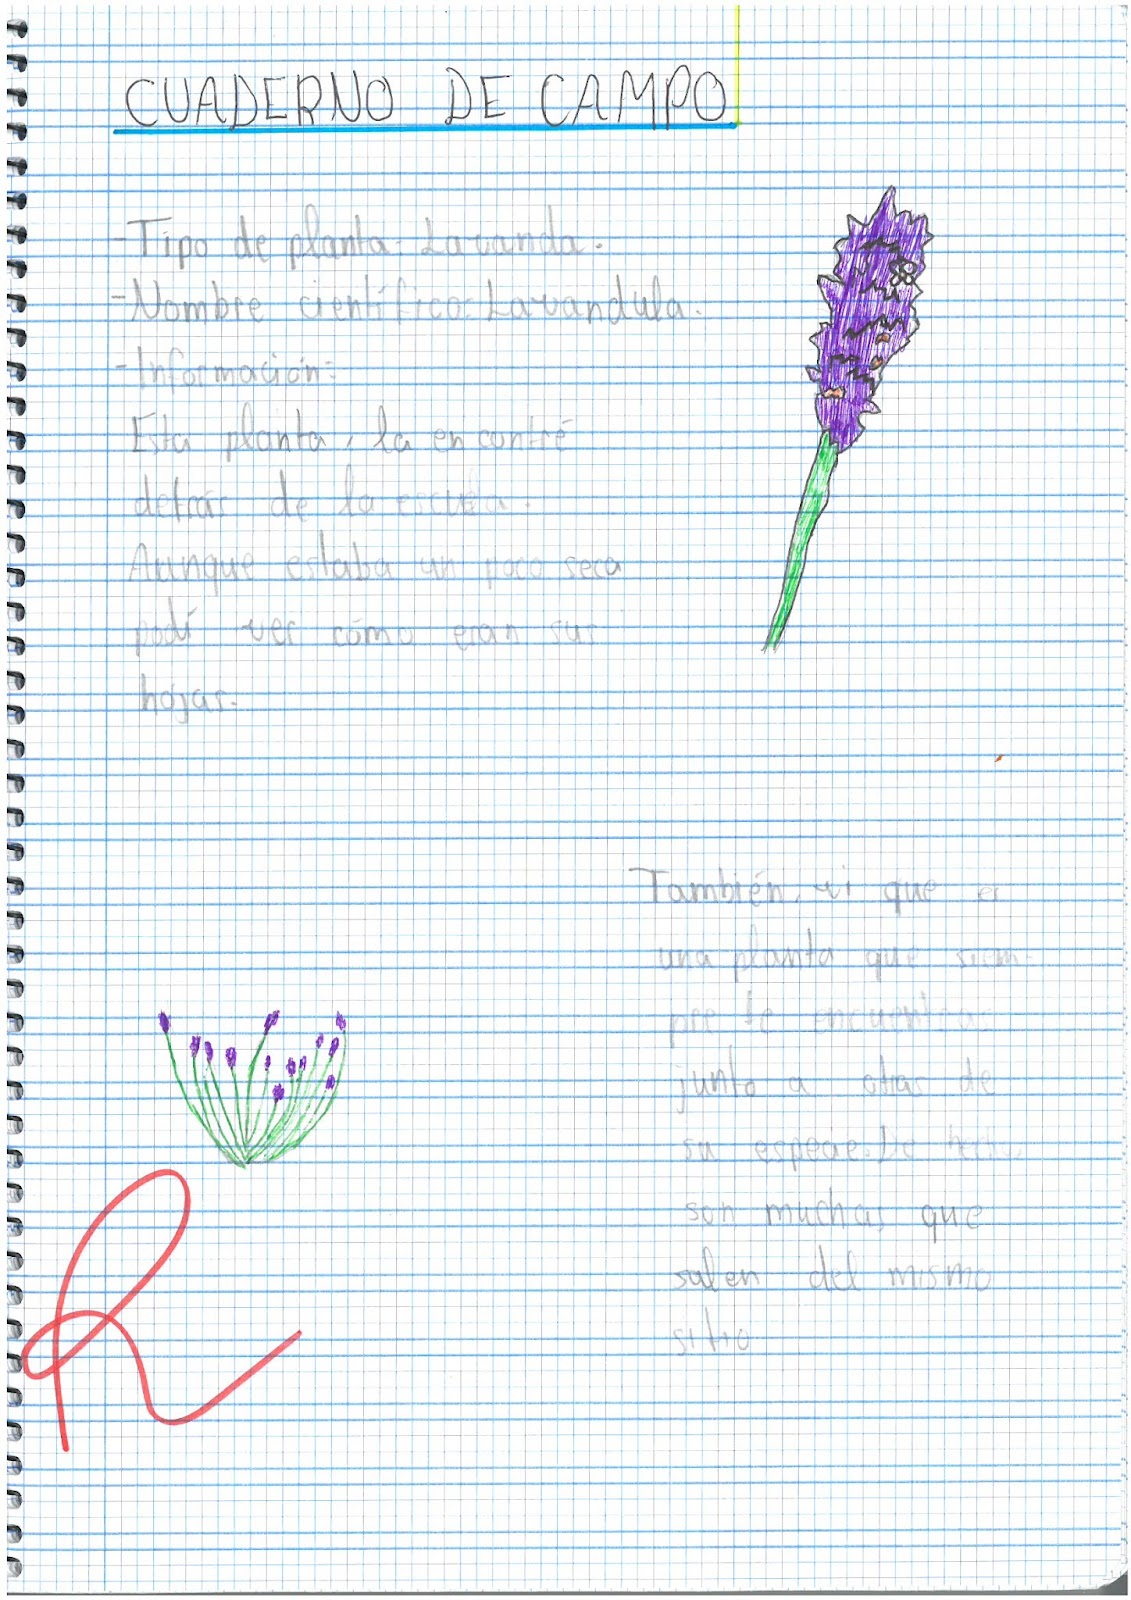 CUADERNO DE CAMPO
-Tipo de planta- Lavanda.
-Nombre científico: Lavandula.
-Información:
Esta planta, la encontré
detrás de la escuela.
Aunque estaba un poco seca
podí ver cómo eran sus
hojas.
También vi que es
una planta que siem-
pre te encuentras
junto a otras de
su especie. De
son muchas que
salen del mismo
sitio
R